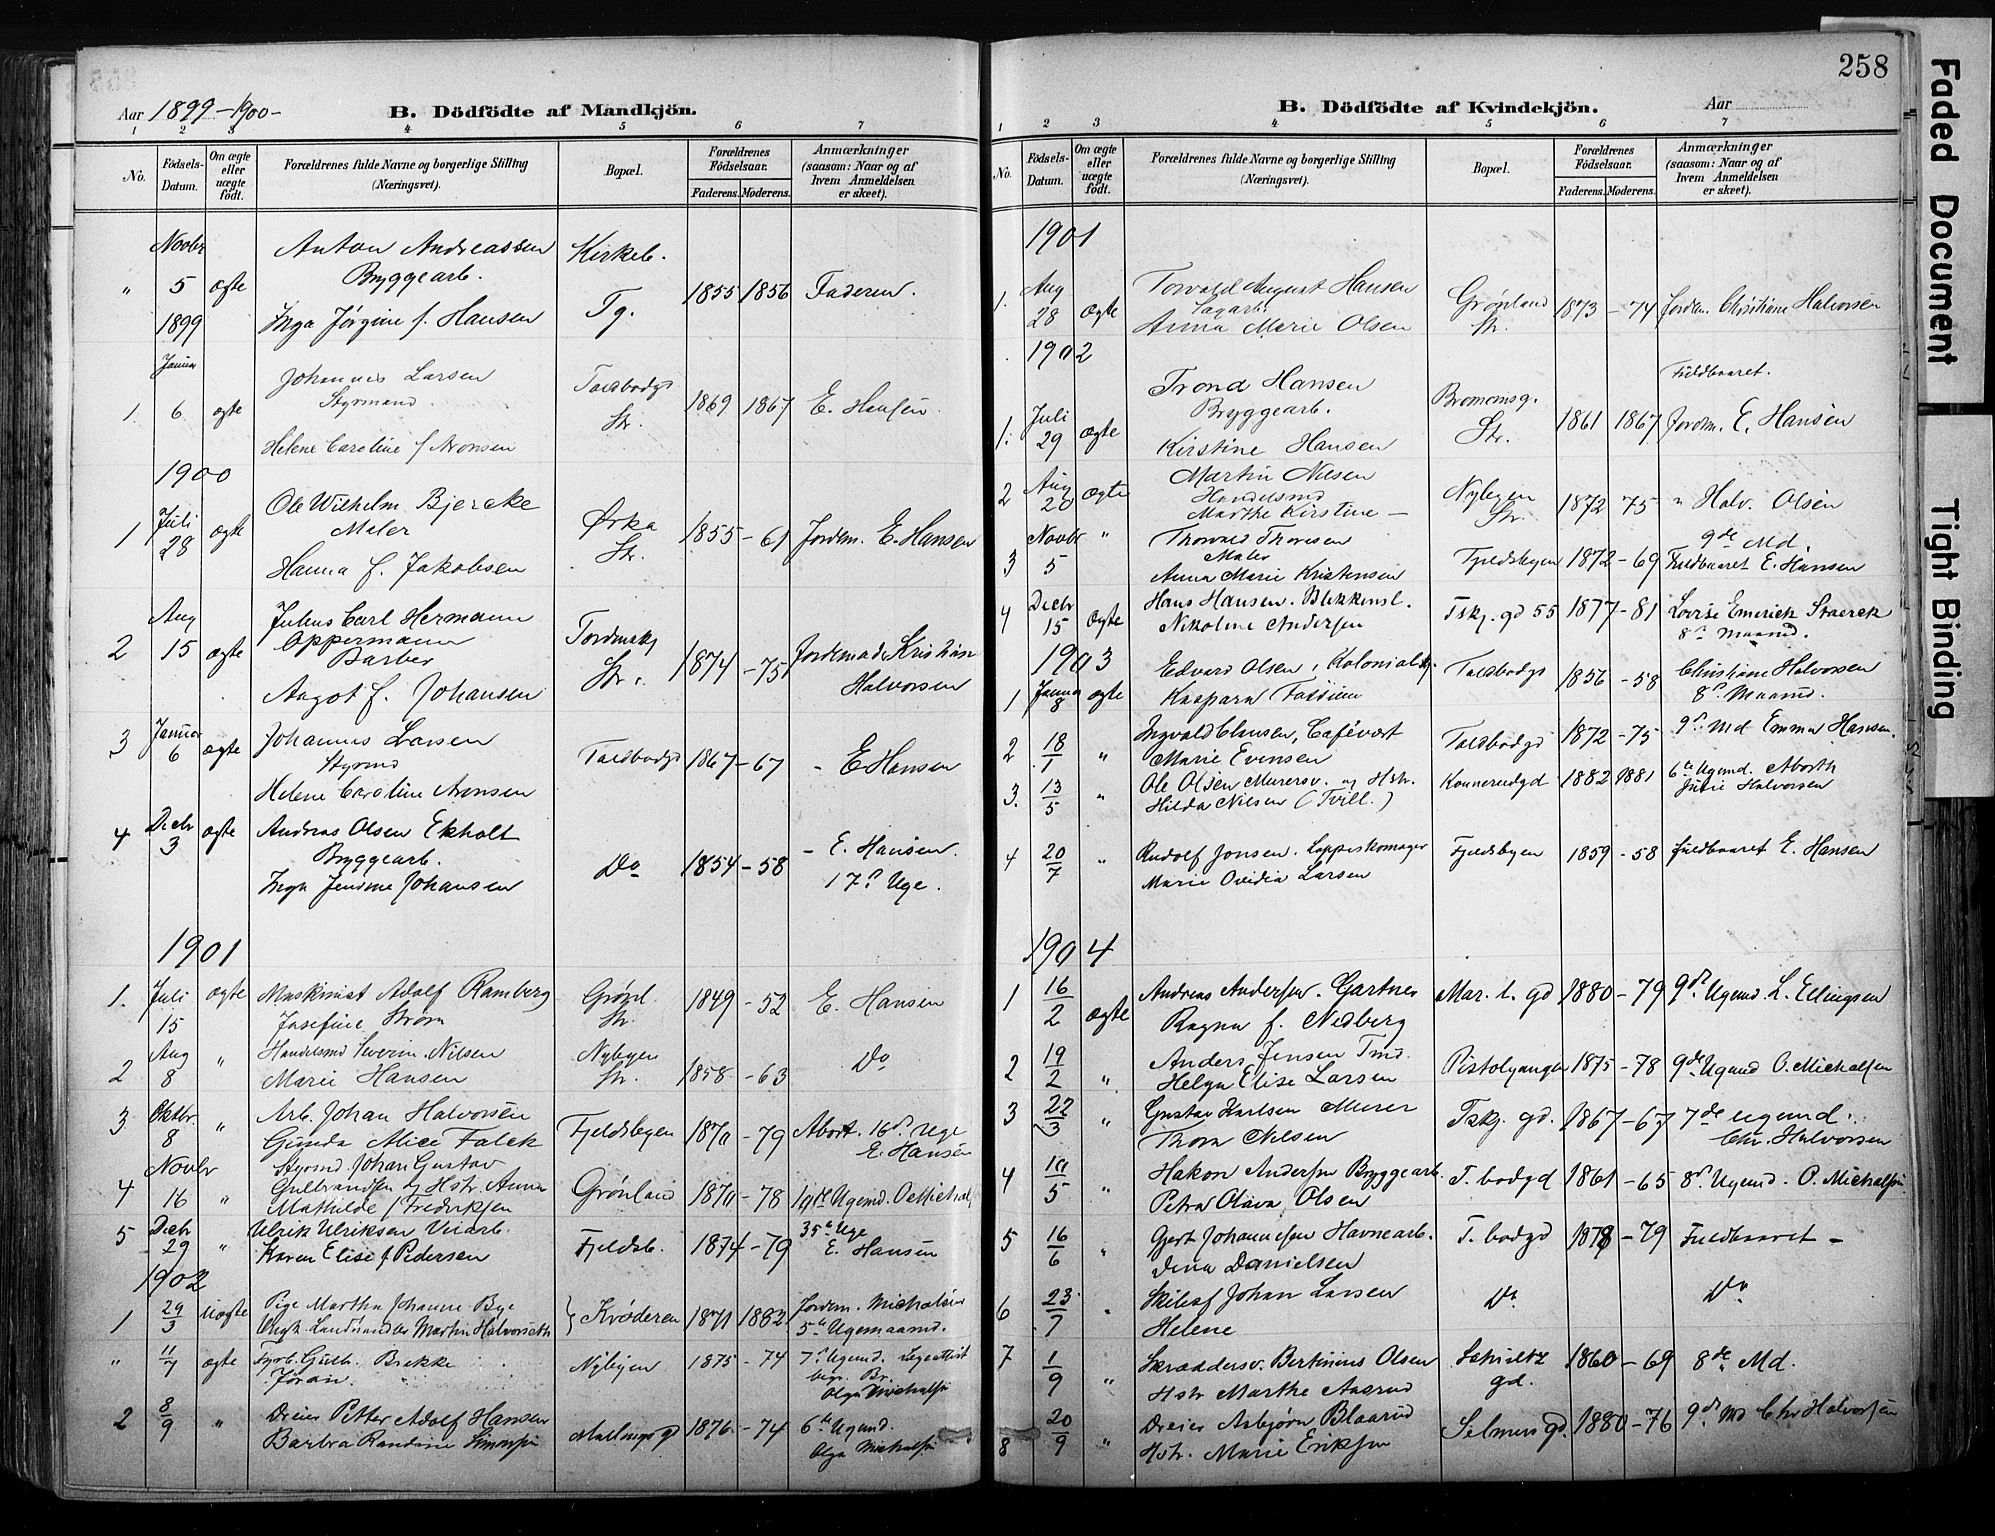 258
Aar 1899-1900-
B. Dödfödte af Mandkjön.
1 2 3 4 5 6 7
No.
Födsels-Datum.
Om ægte eller uægte födt.
Forældrenes fulde Navne og borgerlige Stilling (Næringsvei).
Bopæl.
Forældrenes Födselsaar.
Faderens. Moderens.
Anmærkninger (saasom: Naar og af hvem Anmeldelsen er skeet).
Novbr Anton Andreassen Kirkeb.
" 5 ægte Byggearb. 1855 1856 Faderen.
1899 Inga Jørgine f. Hansen Tg.
Januar Johannes Larsen Toldbodgd
1. 6 ægte Styrmand. Str. 1869 1867 E. Hansen.
Helene Caroline f Aronsen
1900
Ole Wilhelm Bjercke
1 Juli 28 ægte Maler Ørka Str. 1855 - 61 Jordem. E. Hansen
Hanna f. Jakobsen
Aug Julius Carl Hermann
2 15 ægte Oppermann Tordenskj Str. 1874 - 75 Jordemoder Kristiane
Barber Halvorsen
Aagot f. Johansen
3 Januar 6 ægte Johannes Larsen
Styrmd Toldbodgd 1867 - 67 - E Hansen
Helene Caroline Aronsen
4 Decbr 3 ægte Andreas Olsen Ekholt
Byggearb. Do 1854 - 58 - E. Hansen.
Inga Johansen 17de Uge.
1901
1. Juli 15 ægte Maskinist Adolf Ramberg Grønl. Str. 1849 - 52 E. Hansen
Josefine Strøm
2 Aug 8 " Handelsmd Severin Nilsen Nybyen Str. 1858 - 63 Do
Marie Hansen
3 Oktbr 8 " Arb. Johan Halvorsen Fjeldsbyen 1870 - 79 Abort. 16de Uge
Gunda Alice Falck E. Hansen
Novbr Styrmd. Johan Gustav
4 16 " Gulbrandsen og Hstr. Anna Grønland 1870 - 78 10de Ugemd. O Michal
Mathilde f Fredriksen
5 Decbr 29 " Ulrik Ulriksen Veiarb. Fjeldsb. 1874 - 79 35te Uge
Karen Elise f Pedersen E. Hansen
1902
1 29/3 uægte Pige Martha Johanne Bye Krøderen 1871 1882 Jordem. Michalsen
Ungk. Landhandler Martin Halvorseth 5te Ugemaaned.
" 11/7 ægte Fyrb. Gulb. Brekke Nybyen 1875 - 74 7de Ugemd. Legeattest
Jøran Olga Michalsen
2 8/9 " Dreier Petter Adolf Hansen 1876 - 74 6te Ugemd.
Barbra Randine Simonsen Olga Michalsen
B. Dödfödte af Kvindekjön.
Aar
1 2 3 4 5 6 7
No.
Födsels-Datum.
Om ægte eller uægte födt.
Forældrenes fulde Navne og borgerlige Stilling (Næringsvei).
Bopæl.
Forældrenes Födselsaar.
Faderens. Moderens.
Anmærkninger (saasom: Naar og af hvem Anmeldelsen er skeet).
1901
1. Aug 28 ægte Torvald August Hansen Grønland Str. 1873 - 74 Jordm. Christiane Halvorsen
Sagarb.
Anna Marie Olsen
1902
Trond Hansen Fuldbaaret.
1. Juli 29 ægte Byggearb. Str. 1861 1867 Jordm. E. Hansen
Kirstine Hansen
2 Aug 20 ægte Martin Nilsen Nybyen Str. 1872 75 " Halv. Olsen
Handelsmd
Marthe Kirstine - 9de Md.
3 Novbr 5 " Thorvald Thoresen Fjeldsbyen 1872 - 69 Fuldbaaret E. Hansen
Maler
Anna Marie Kristensen
4 Decbr 15 ægte Hans Hansen. Blikkensl. Tskj. gd 55 1877 - 81 Lovise Emerick Staerck
Nikoline Andersen 8de Maaned.
1903
1 Januar 8 ægte Edvard Olsen, Toldbodgd 1856 - 58 Christiane Halvorsen
Kaspara Fossum 8de Maaned.
2 18/1 " Ingvald Clausen, Cafévært Toldbodgd 1872 - 75 9de Md Emma Hansen.
Marie Evensen
3. 13/5 " Ole Olsen Murersv. og Hstr. Konnerudgd 1882 1881 6te Ugemd. Aborth
Hilda Nilsen (Tvill.) Julie Halvorsen
4 20/7 " Rudolf Jonsen. Lappeskomager Fjeldsbyen 1859 - 58 Fuldbaaret E. Hansen
Marie Ovidia Larsen
1904
1 16/2 ægte Andreas Andersen. Gartner Mar. l. gd 1880 - 79 9de Ugemd. L. Ellingsen
Ragna f. Nedberg
2 19/2 " Anders Jensen Tmd. Pistolganger 1875 - 78 9de Ugemd O. Michalsen
Helga Elise Larsen
3 22/3 " Gustav Karlsen Murer Tskj. gd. 1867 - 67 7de Ugemd.
Thora Nilsen Chr. Halvorsen
4 10/5 " Hakon Andersen Byggearb. T. bodgd 1861 - 65 8de Ugemd. O. Michalsen
Petra Olava Olsen
5 16/6 " Gert Johannesen Havnearb. T. bodgd 1878 - 79 Fuldbaaret -
Dina Danielsen
6 23/7 " Johan Larsen Do Do
Helene
7 1/9 " Skræddersv. Bertinius Olsen Schultz gd. 1860 - 69 8de Md.
Hstr Marthe Aasrud
8 20/9 " Dreier Asbjørn Blaarud Selmers gd. 1880 - 76 9de Md Chr Halvorsen
Hstr. Marie Eriksen
Faded Document
Tight Binding